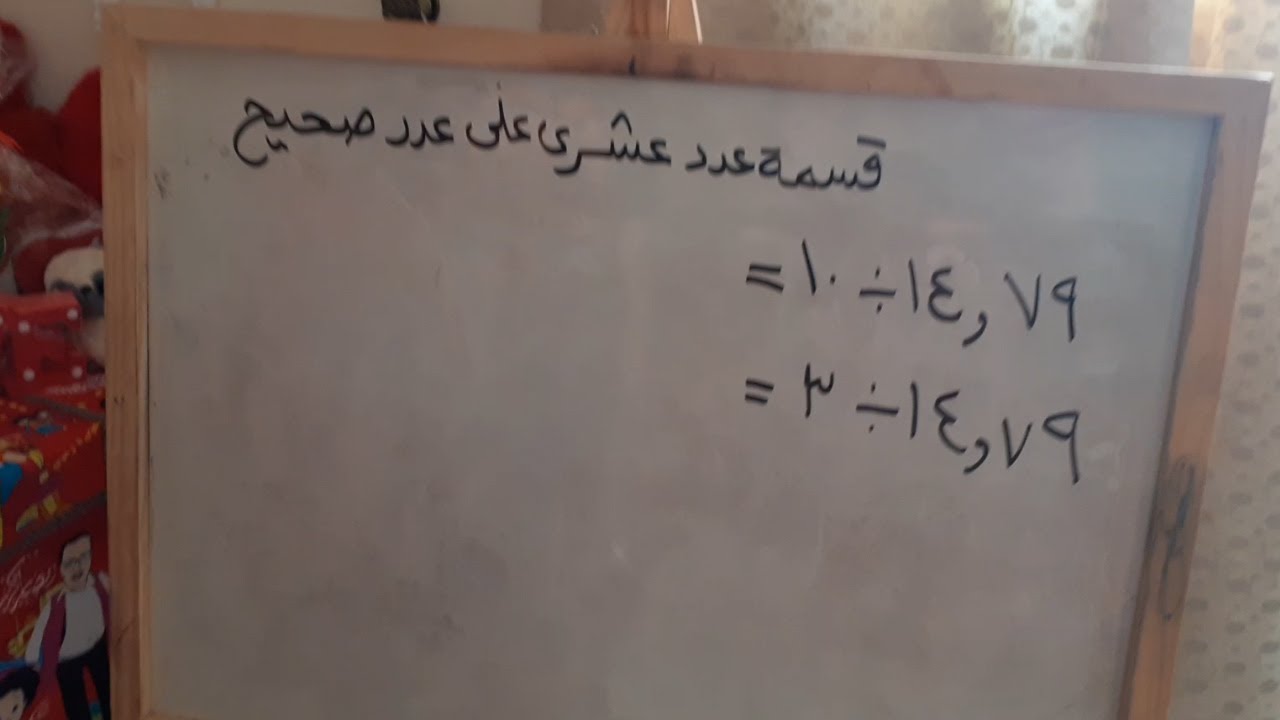 قسمة عدد عشرى على عدد صحيح
١٤,٧٩ ÷ ١٠ =
١٤,٧٩ ÷ ٣ =